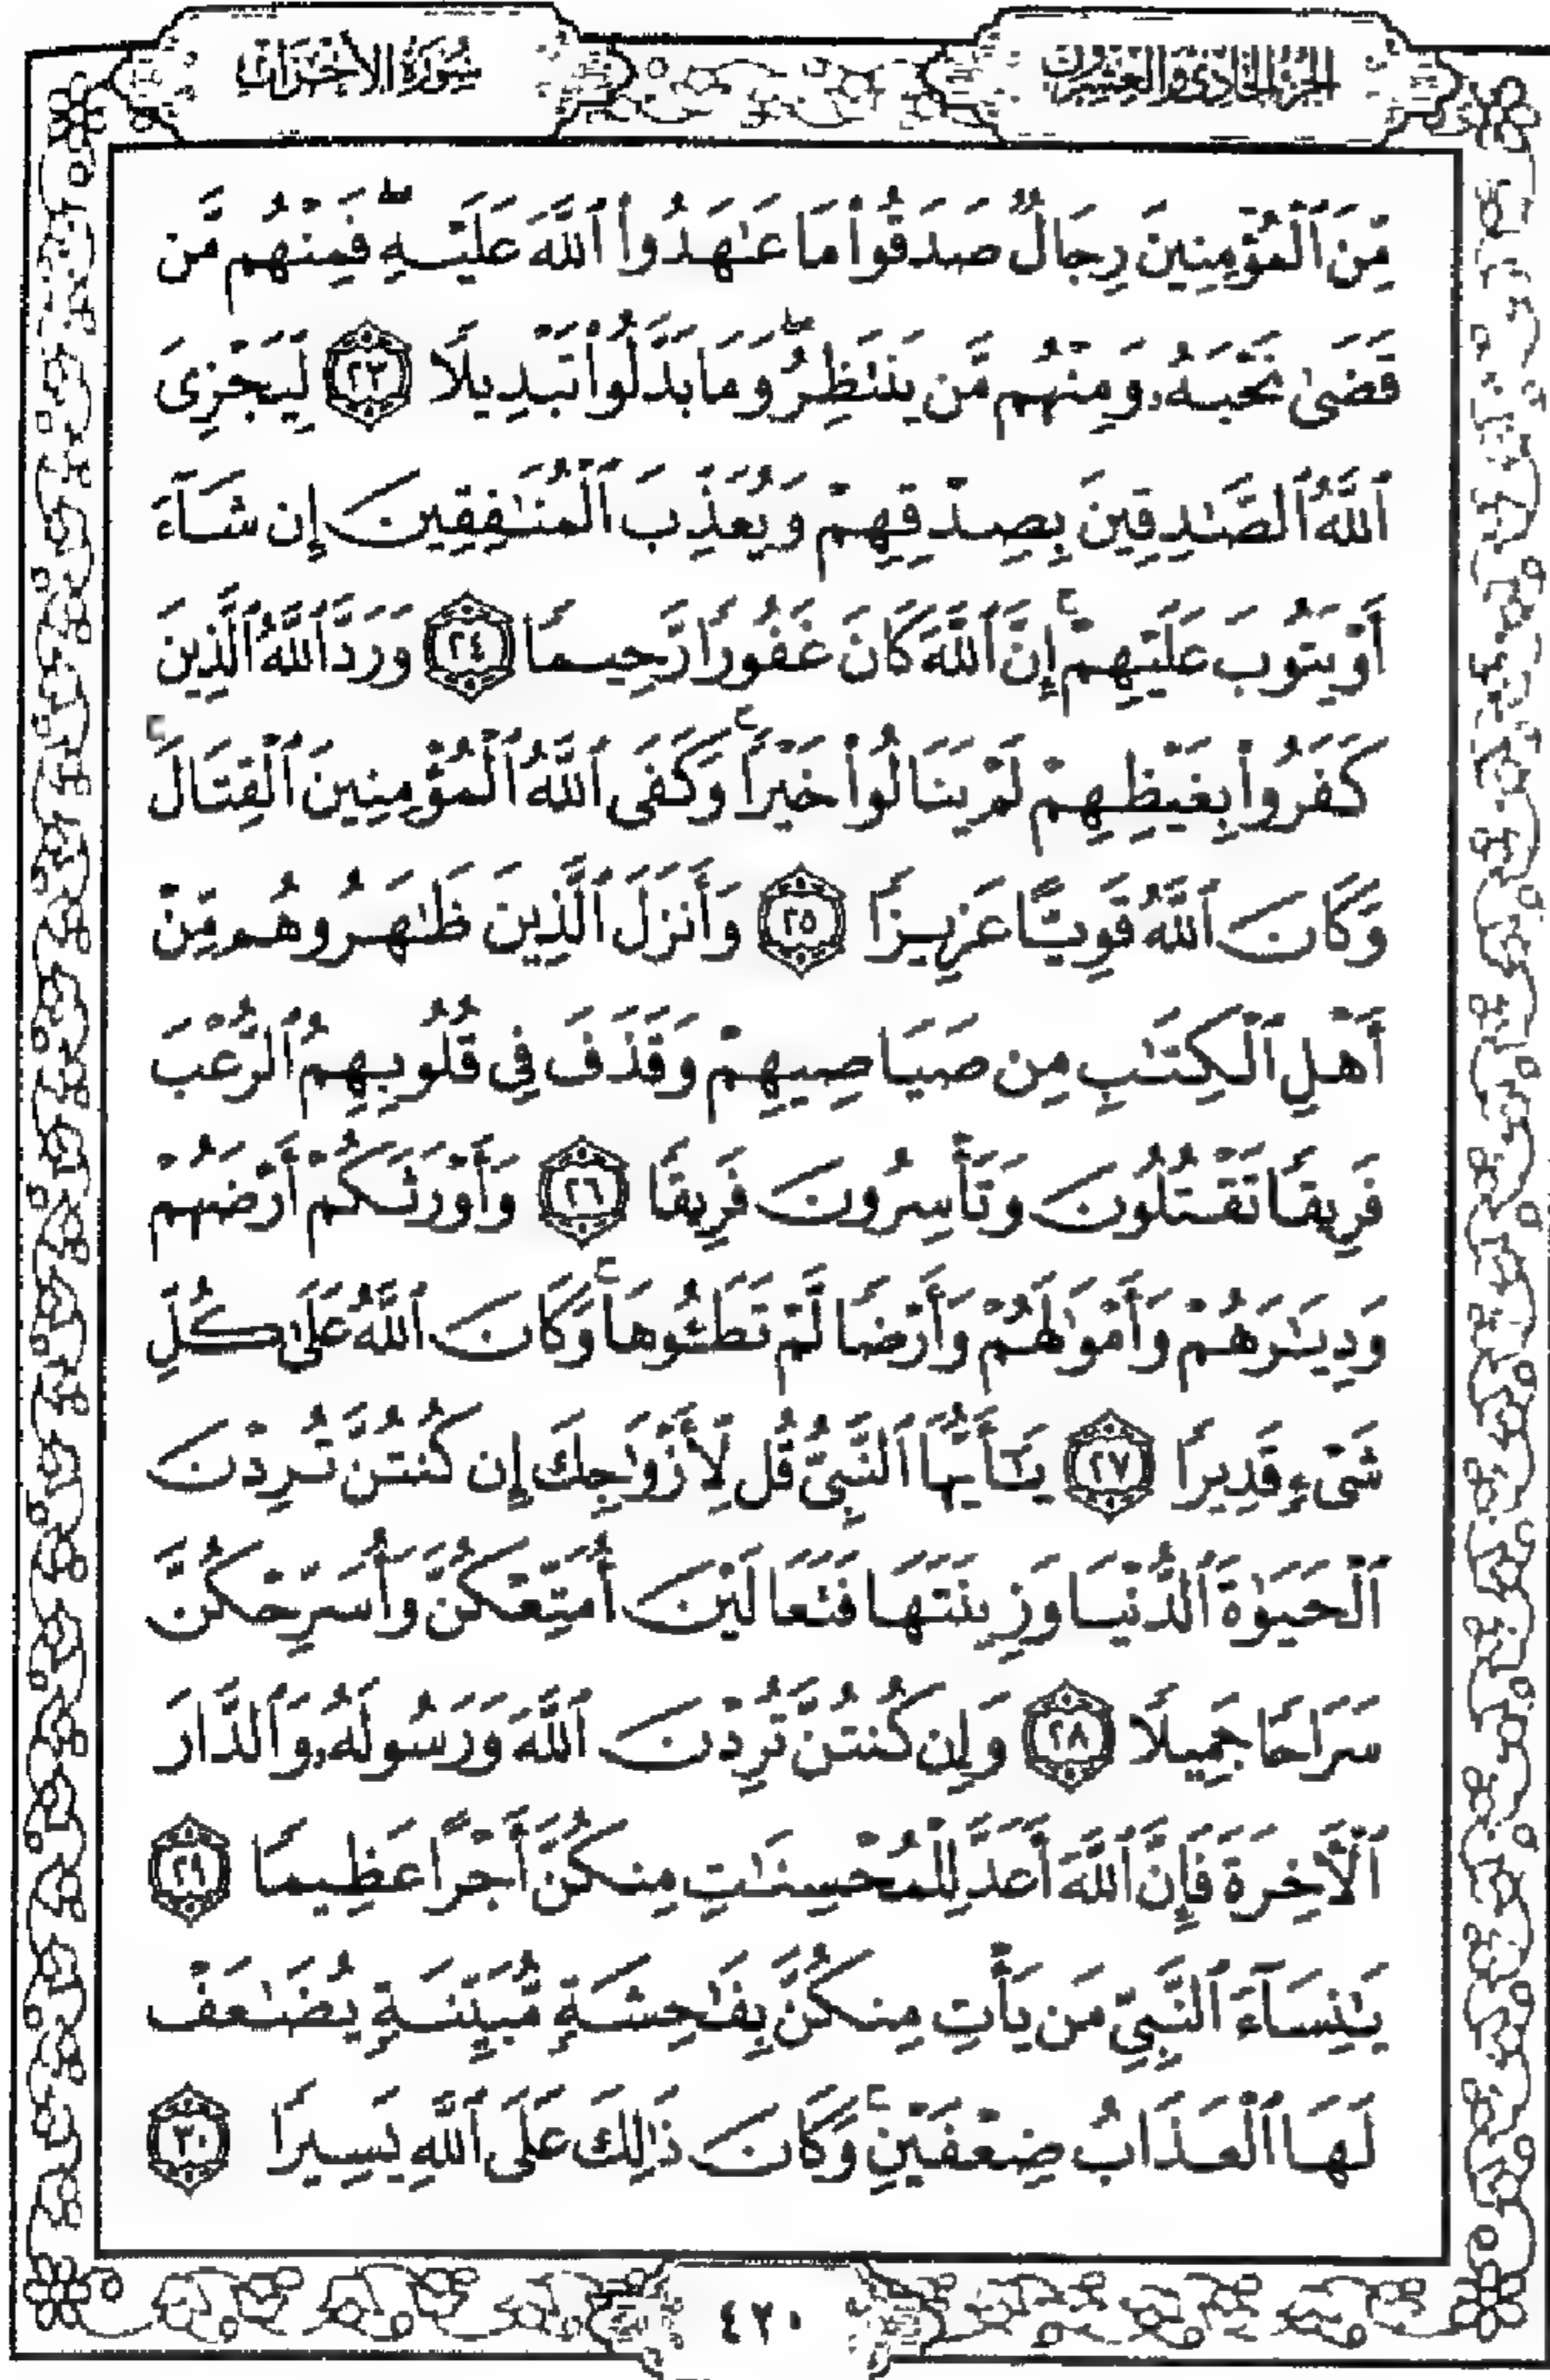 الجزء الحادي والعشرون
سورة الأحزاب
مِّنَ ٱلْمُؤْمِنِينَ رِجَالٌ صَدَقُوا۟ مَا عَـٰهَدُوا۟ ٱللَّهَ عَلَيْهِ ۖ فَمِنْهُم مَّن
قَضَىٰ نَحْبَهُۥ وَمِنْهُم مَّن يَنتَظِرُ ۖ وَمَا بَدَّلُوا۟ تَبْدِيلًا ٢٣ لِّيَجْزِىَ
ٱللَّهُ ٱلصَّـٰدِقِينَ بِصِدْقِهِمْ وَيُعَذِّبَ ٱلْمُنَـٰفِقِينَ إِن شَآءَ
أَوْ يَتُوبَ عَلَيْهِمْ ۚ إِنَّ ٱللَّهَ كَانَ غَفُورًا رَّحِيمًا ٢٤ وَرَدَّ ٱللَّهُ ٱلَّذِينَ
كَفَرُوا۟ بِغَيْظِهِمْ لَمْ يَنَالُوا۟ خَيْرًا ۚ وَكَفَى ٱللَّهُ ٱلْمُؤْمِنِينَ ٱلْقِتَالَ ۚ
وَكَانَ ٱللَّهُ قَوِيًّا عَزِيزًا ٢٥ وَأَنزَلَ ٱلَّذِينَ ظَـٰهَرُوهُم مِّنْ
أَهْلِ ٱلْكِتَـٰبِ مِن صَيَاصِيهِمْ وَقَذَفَ فِى قُلُوبِهِمُ ٱلرُّعْبَ
فَرِيقًا تَقْتُلُونَ وَتَأْسِرُونَ فَرِيقًا ٢٦ وَأَوْرَثَكُمْ أَرْضَهُمْ
وَدِيَـٰرَهُمْ وَأَمْوَٰلَهُمْ وَأَرْضًا لَّمْ تَطَـُٔوهَا ۚ وَكَانَ ٱللَّهُ عَلَىٰ كُلِّ
شَىْءٍ قَدِيرًا ٢٧ يَـٰٓأَيُّهَا ٱلنَّبِىُّ قُل لِّأَزْوَٰجِكَ إِن كُنتُنَّ تُرِدْنَ
ٱلْحَيَوٰةَ ٱلدُّنْيَا وَزِينَتَهَا فَتَعَالَيْنَ أُمَتِّعْكُنَّ وَأُسَرِّحْكُنَّ
سَرَاحًا جَمِيلًا ٢٨ وَإِن كُنتُنَّ تُرِدْنَ ٱللَّهَ وَرَسُولَهُۥ وَٱلدَّارَ
ٱلْـَٔاخِرَةَ فَإِنَّ ٱللَّهَ أَعَدَّ لِلْمُحْسِنَـٰتِ مِنكُنَّ أَجْرًا عَظِيمًا ٢٩
يَـٰنِسَآءَ ٱلنَّبِىِّ مَن يَأْتِ مِنكُنَّ بِفَـٰحِشَةٍ مُّبَيِّنَةٍ يُضَـٰعَفْ
لَهَا ٱلْعَذَابُ ضِعْفَيْنِ ۚ وَكَانَ ذَٰلِكَ عَلَى ٱللَّهِ يَسِيرًا ٣٠
٤٢٠